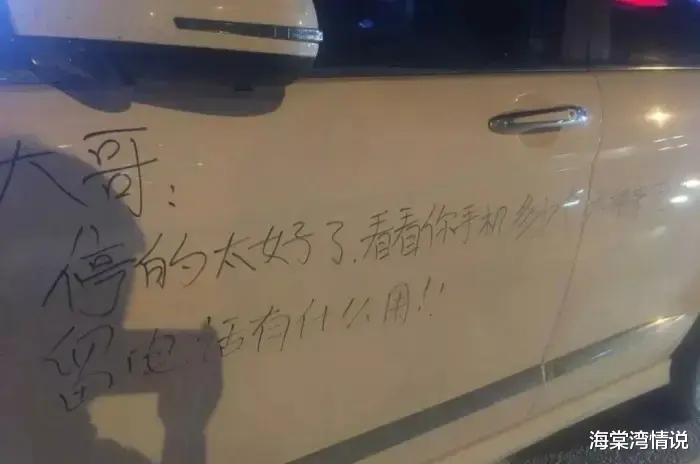 大哥:
停的太好了.看看你手机多少个
留电话有什么用!!
海棠湾情说